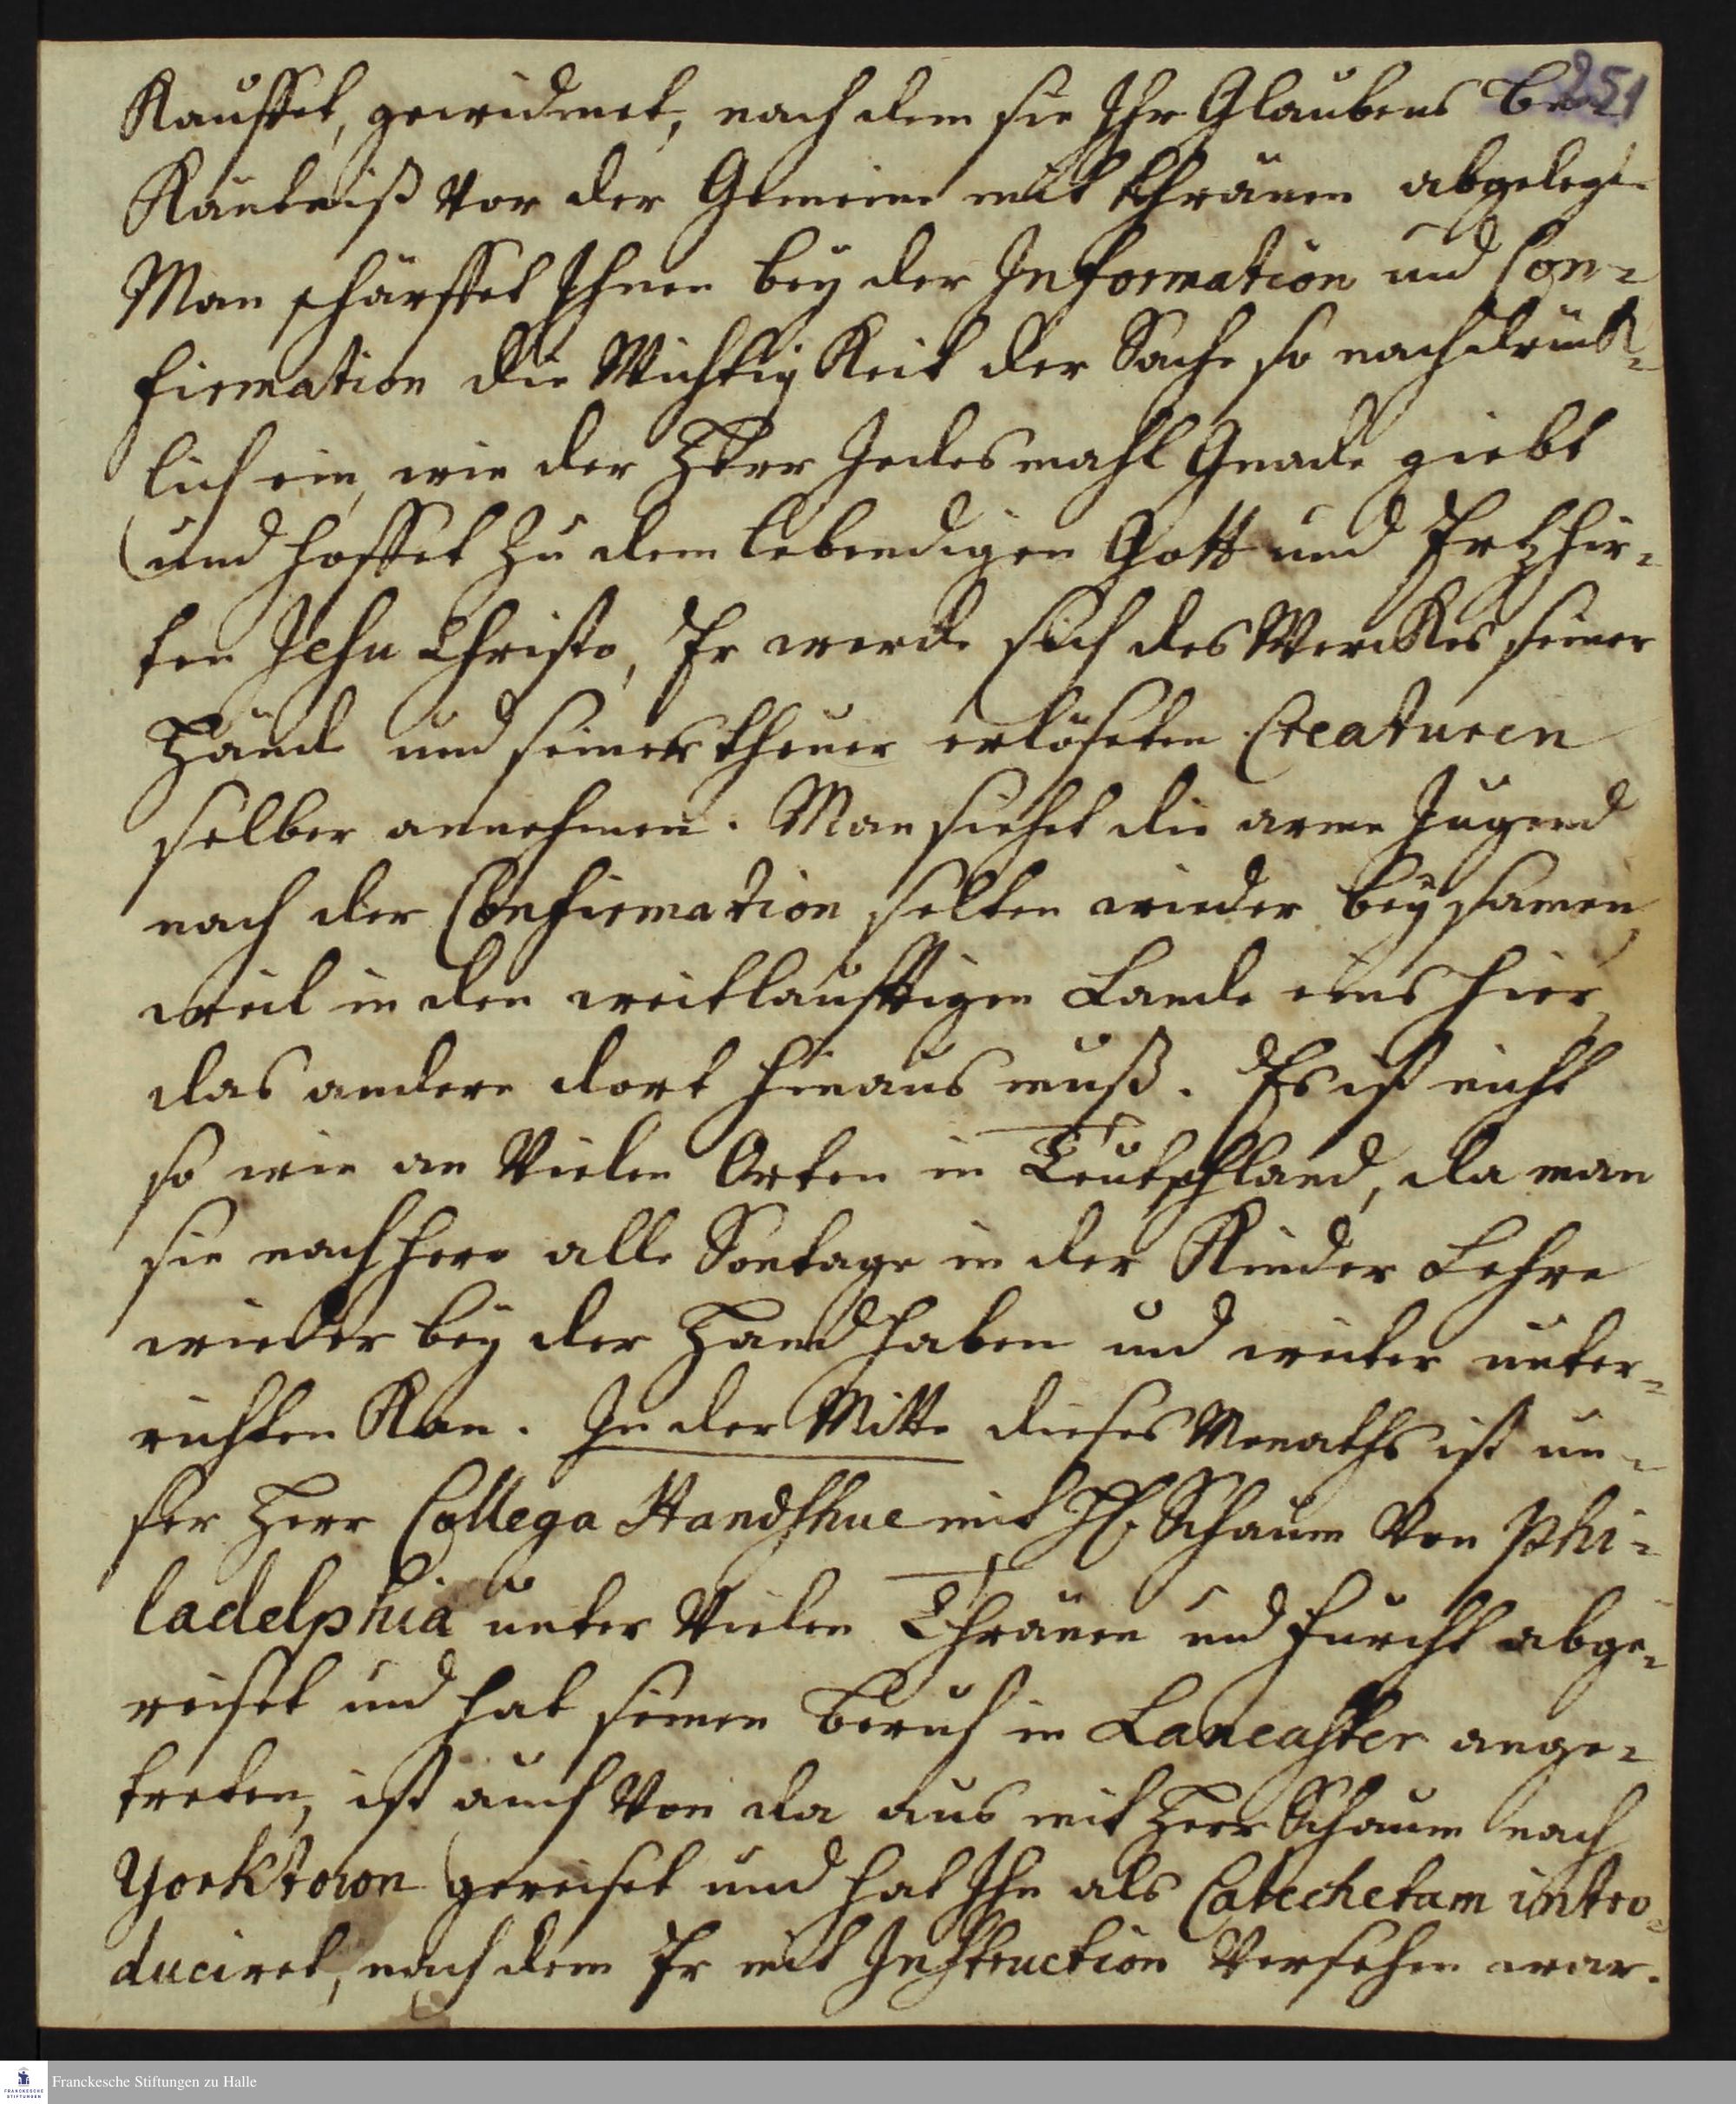 251
Kauffet, gewidmet, nach dem sie Ihr Glaubens Be-
käntniß vor der Gemeine mit thränen abgelegt.
Man schärffet Ihnen bey der Information und Con-
firmation die Wichtigkeit der Sache so nachdrück-
lich ein, wie der Herr Jedesmahl Gnade giebt
und hoffet zu dem lebendigen Gott und Ertzhir-
ten Jesu Christo, Er werde sich des Werckes seiner
Hände und seiner theuer erlöseten Creaturen
selber annehmen. Man siehet die arme Jugend
nach der Confirmation selten wieder beysamen,
weil in den weitläufftigen Lande eins hier,
das andere dort hinaus muß. Es ist nicht
so wie an vielen Orten in Teutschland, da man
sie nachhero alle Sontage in der Kinder Lehre
wieder bey der Hand haben und weiter unter-
richten kan. In der Mitte dieses Monaths ist un-
ser Herr Collega Handshue mit H. Schaum von Phi-
ladelphia unter vielen Thränen und Furcht abge-
reiset und hat seinen Beruf in Lancaster ange-
treten, ist auch von da aus mit Herr Schaum nach
Yorktown gereiset und hat Ihn als Catechetam intro-
duciret, nach dem Er mit Instruction versehen war.
Franckesche Stiftungen zu Halle
FRANCKESCHE
STIFTUNGEN